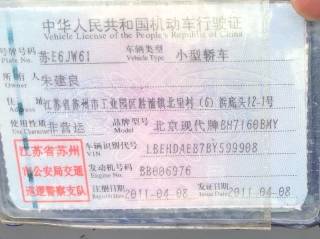 中华人民共和国机动车行驶证
Vehicle License of the People's Republic of China
号牌号码 苏E6JW61 车辆类型 小型轿车
Plate No. Vehicle Type
所有人 朱建良
Owner
住址 江苏省苏州市工业园区胜浦镇北里村(6)浜底头12-1号
使用性质 非营运 品牌型号 北京现代牌BH7160BMY
Use Character Model
江苏省苏州市公安局交通巡逻警察支队
车辆识别代号 LBEHDAEB7BY599908
VIN
发动机号码 BB006976
Engine No.
注册日期 2011-04-08 发证日期 2011-04-08
Register Date Issue Date